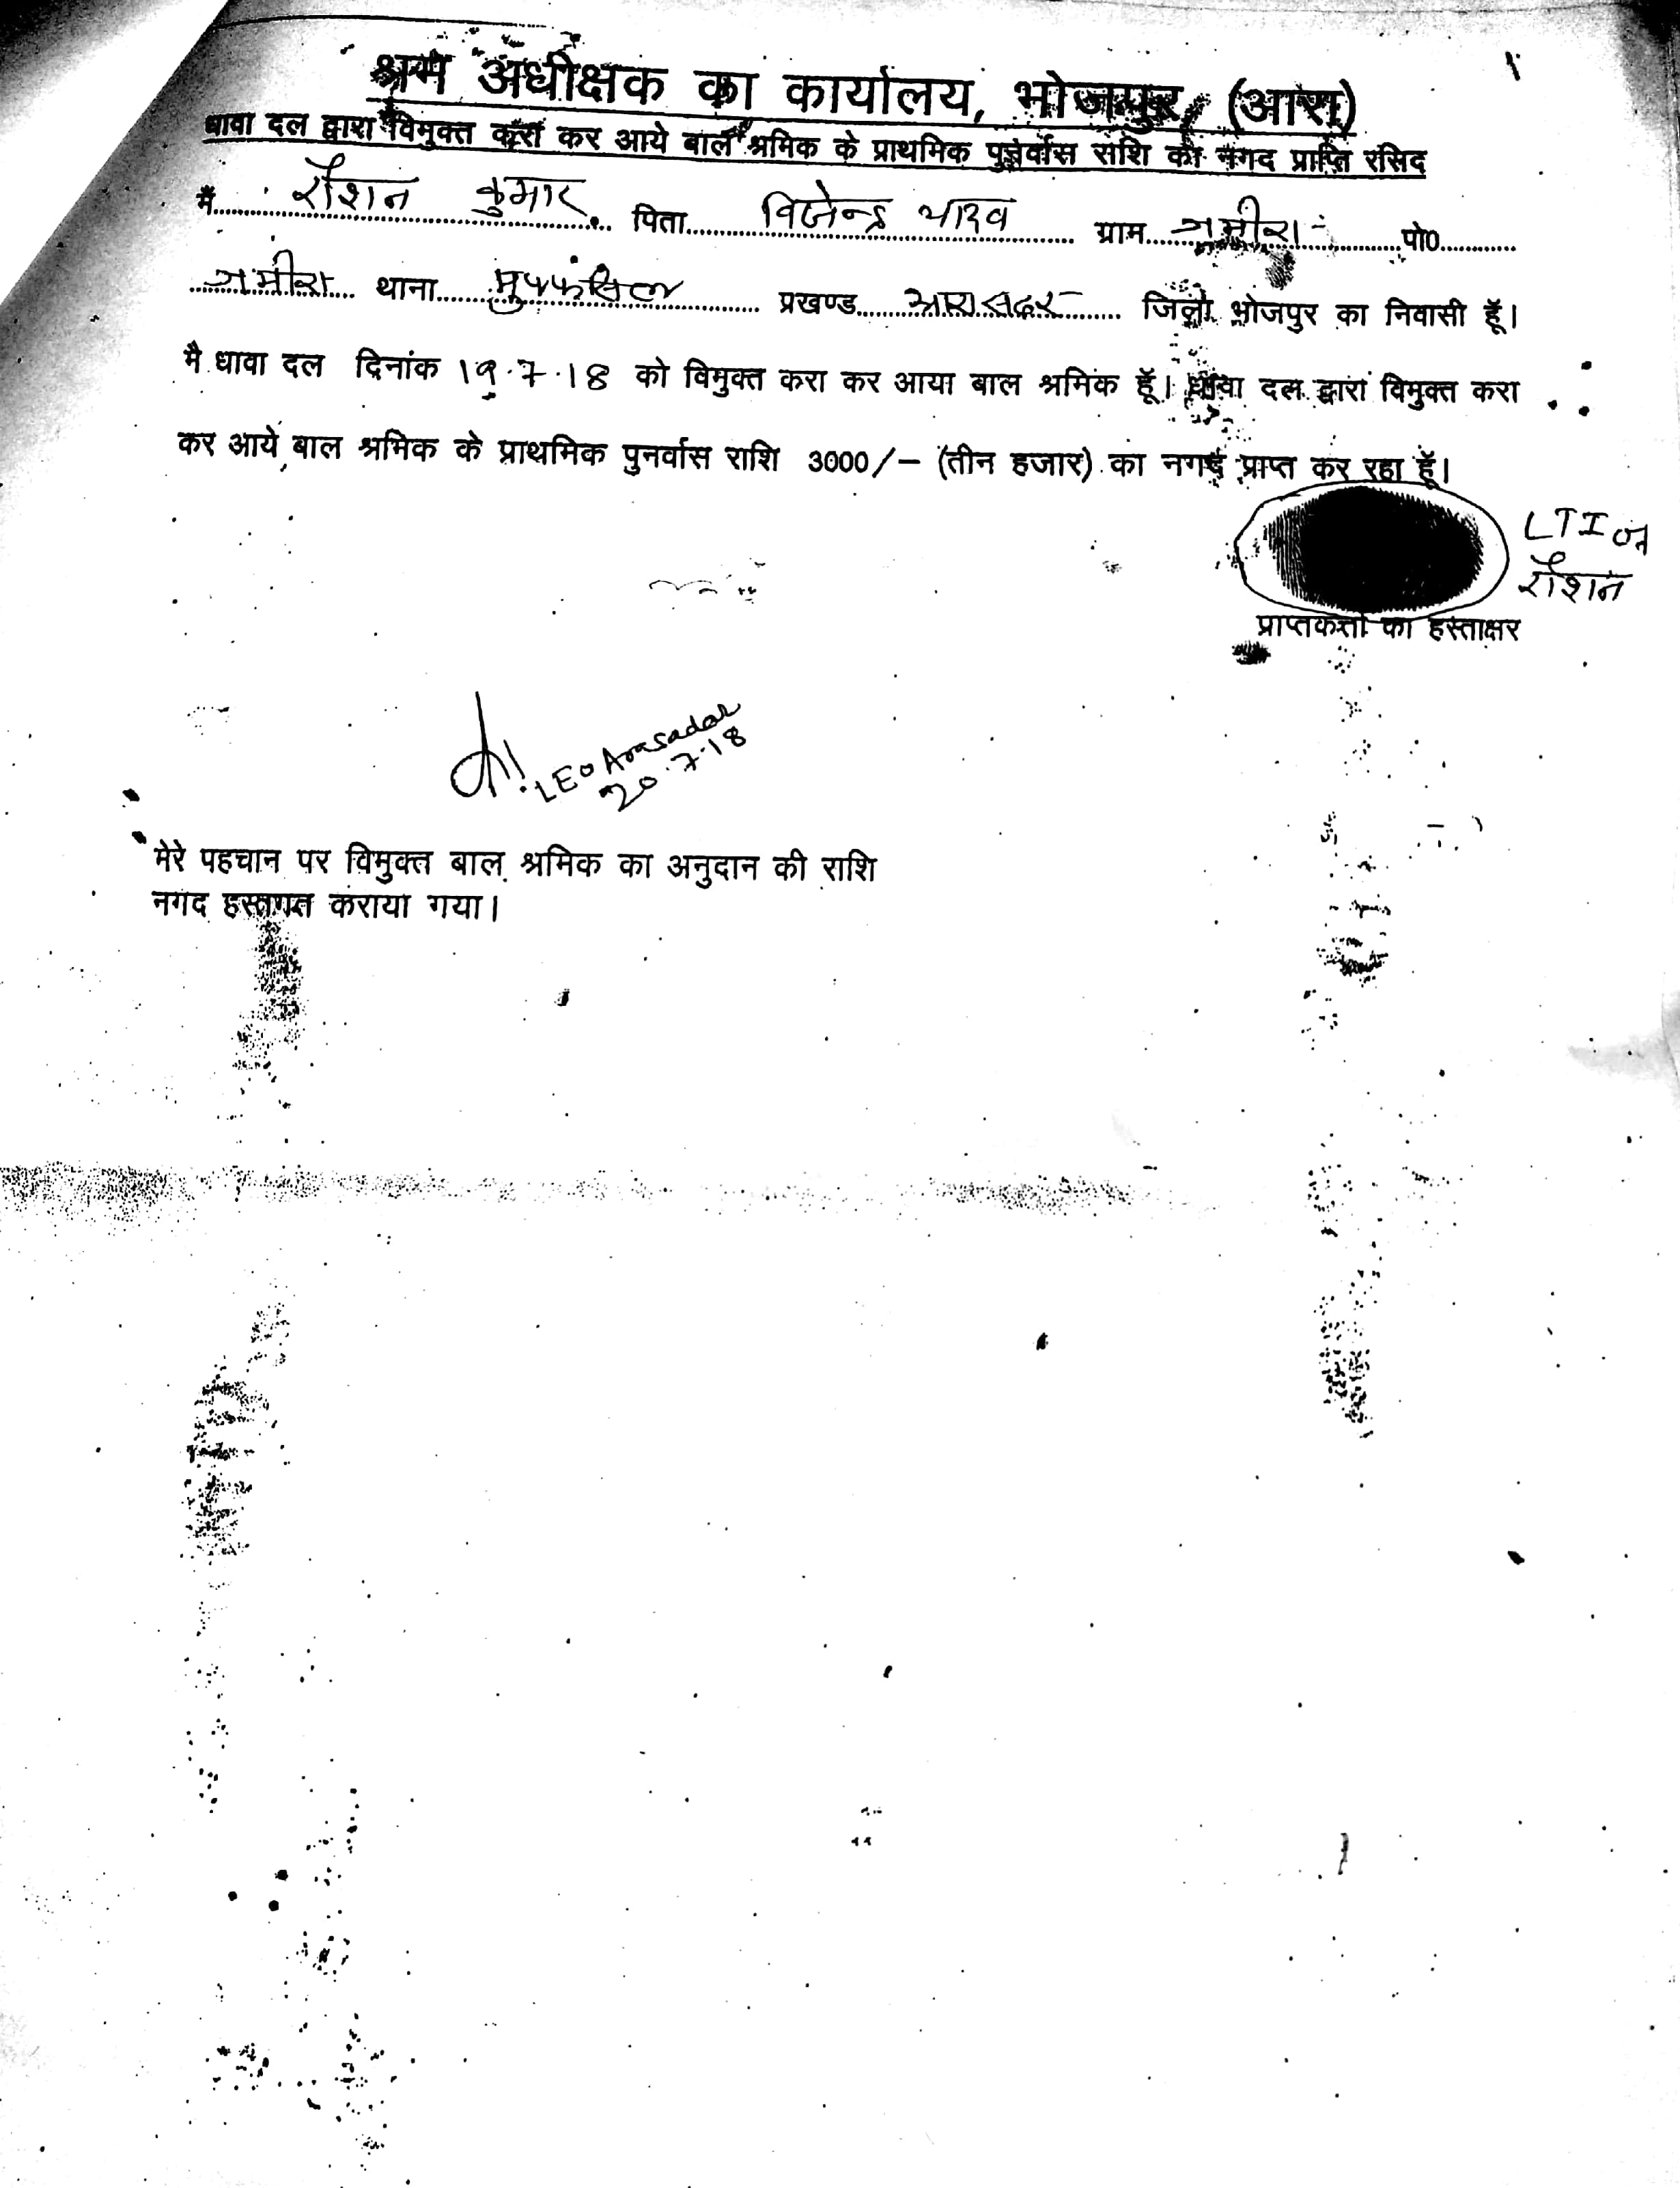 श्रम अधीक्षक का कार्यालय, भोजपुर, (आरा)
धावा दल द्वारा विमुक्त करा कर आये बाल श्रमिक के प्राथमिक पुनर्वास राशि की नगद प्राप्ति रसिद
मैं रौशन कुमार पिता विजेन्द्र यादव ग्राम जमीरा पो0
जमीरा थाना मुफ्फसिल प्रखण्ड आरा सदर जिला भोजपुर का निवासी हूँ।
मै धावा दल दिनांक 19.7.18 को विमुक्त करा कर आया बाल श्रमिक हूँ। धावा दल द्वारा विमुक्त करा
कर आये बाल श्रमिक के प्राथमिक पुनर्वास राशि 3000/- (तीन हजार) का नगद प्राप्त कर रहा हूँ।
LTI of
रौशन
प्राप्तकर्त्ता का हस्ताक्षर
LEO Arasadar
20.7.18
मेरे पहचान पर विमुक्त बाल श्रमिक का अनुदान की राशि
नगद हस्तगत कराया गया।